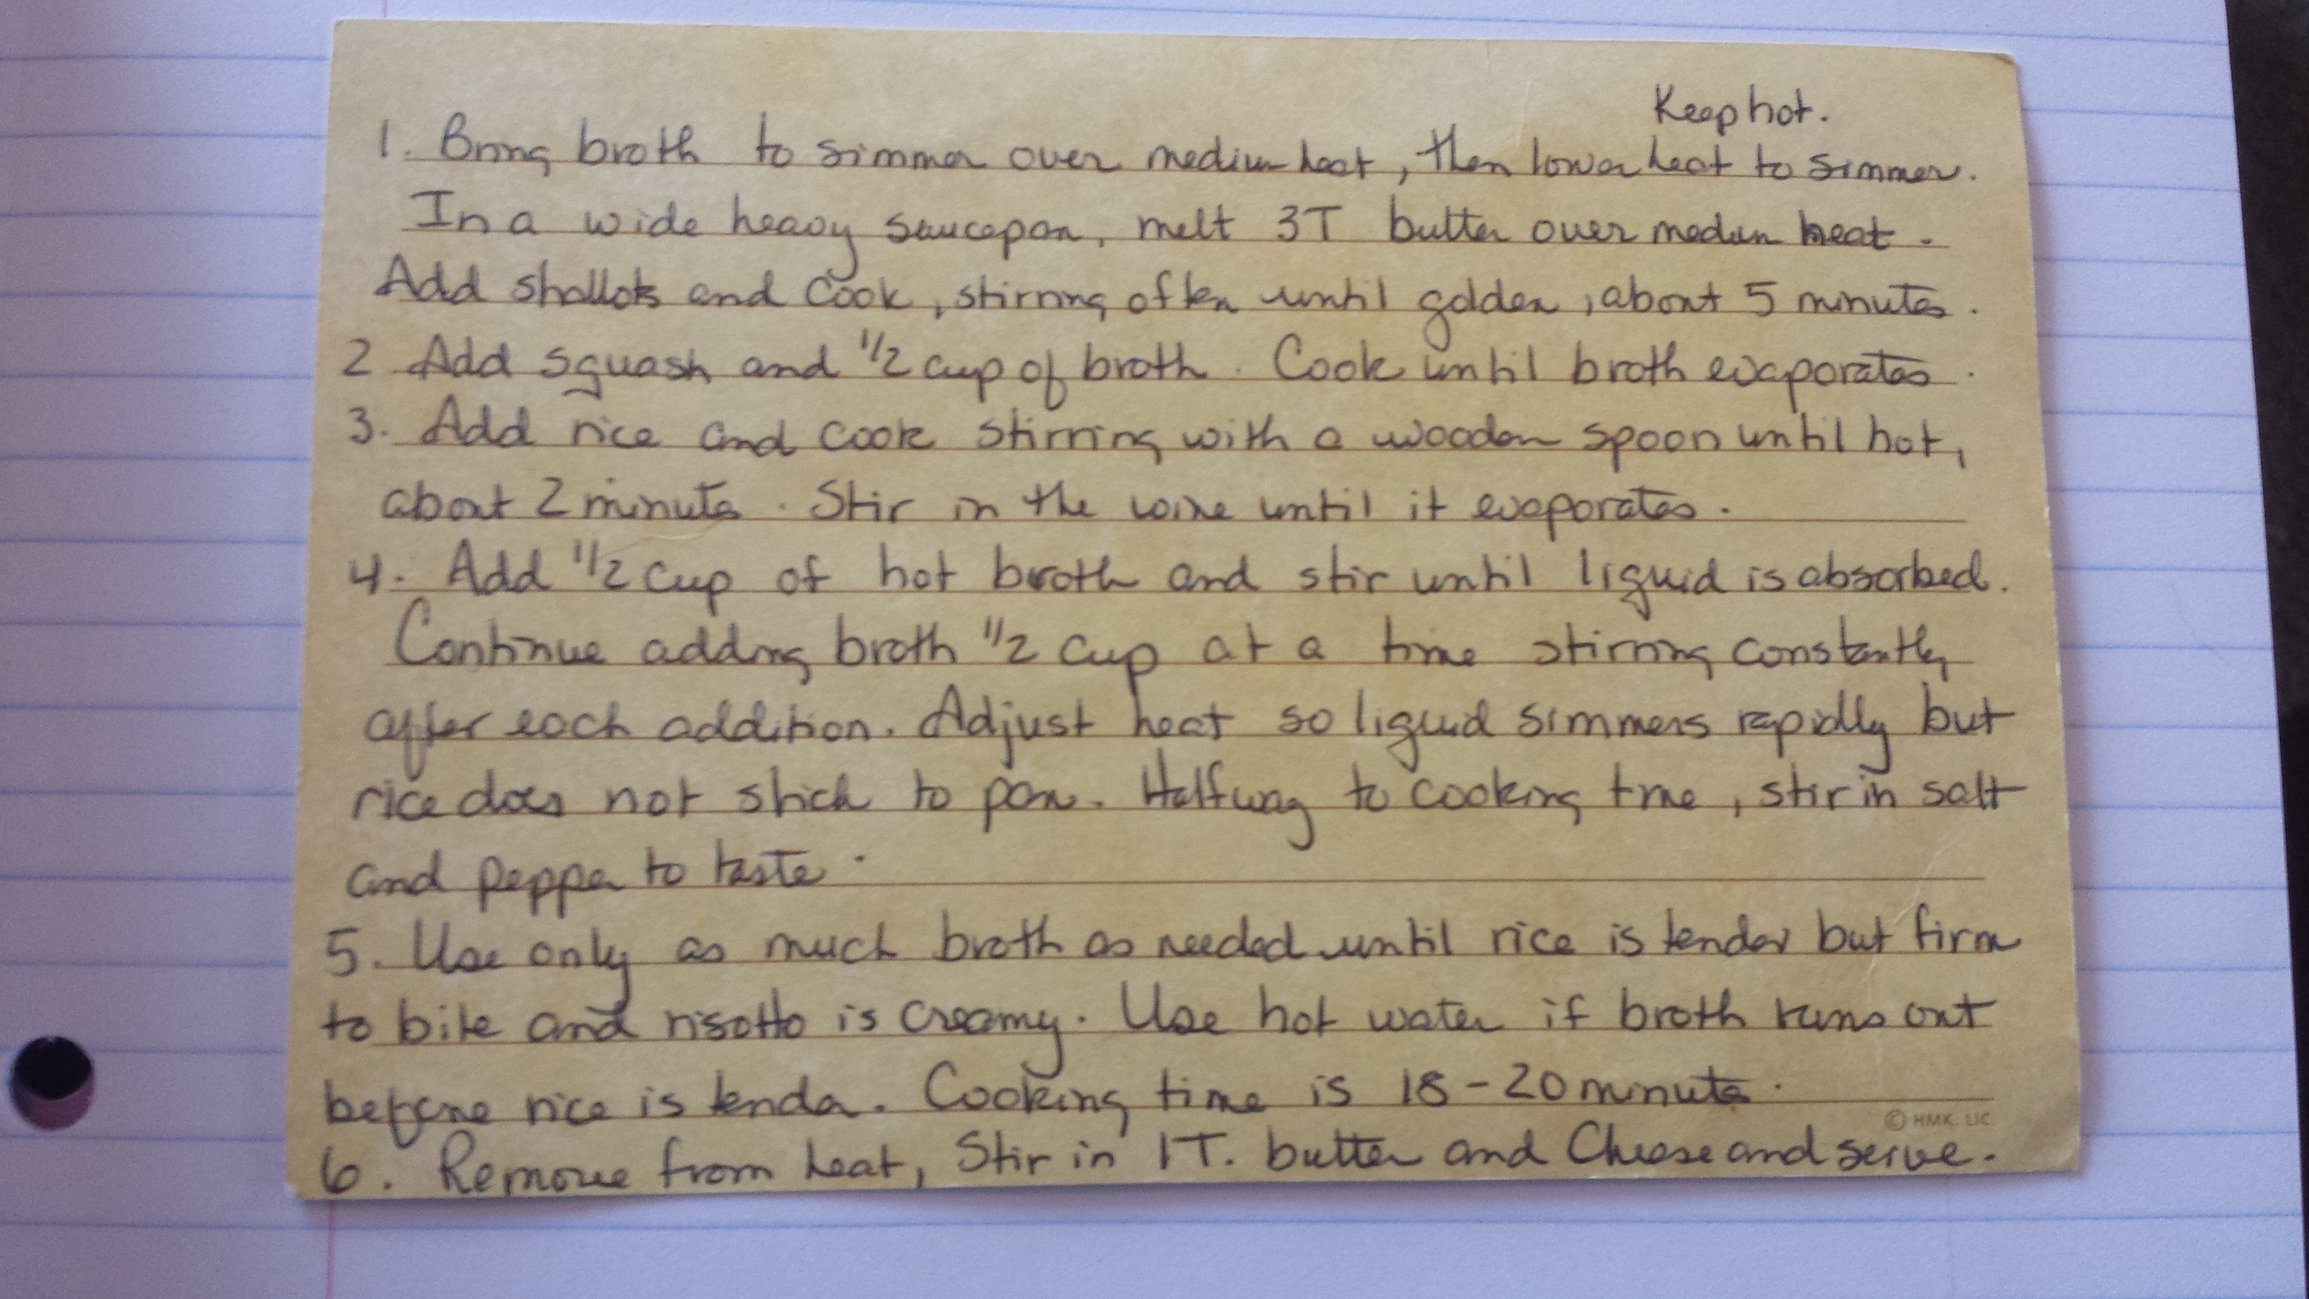 Keep hot.
1. Bring broth to simmer over medium heat, then lower heat to simmer.
In a wide heavy saucepan, melt 3T butter over medium heat.
Add shallots and cook, stirring often until golden, about 5 minutes.
2 Add squash and 1/2 cup of broth. Cook until broth evaporates.
3. Add rice and cook stirring with a wooden spoon until hot,
about 2 minutes. Stir in the wine until it evaporates.
4. Add 1/2 cup of hot broth and stir until liquid is absorbed.
Continue adding broth 1/2 cup at a time stirring constantly
after each addition. Adjust heat so liquid simmers rapidly but
rice does not stick to pan. Halfway to cooking time, stir in salt
and pepper to taste.
5. Use only as much broth as needed until rice is tender but firm
to bite and risotto is creamy. Use hot water if broth runs out
before rice is tender. Cooking time is 18-20 minutes.
© HMK. LIC.
6. Remove from heat, Stir in 1T. butter and Cheese and serve.